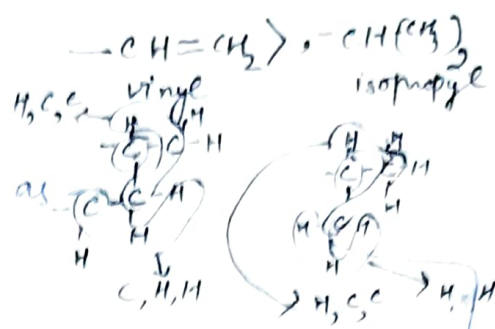 — CH = CH₂ > , - CH(CH₃)₂
vinyl isopropyl
H, C, C
H H H
C C - H C H
as C C - H H C H
H H H H
C, H, H H, C, C H, H